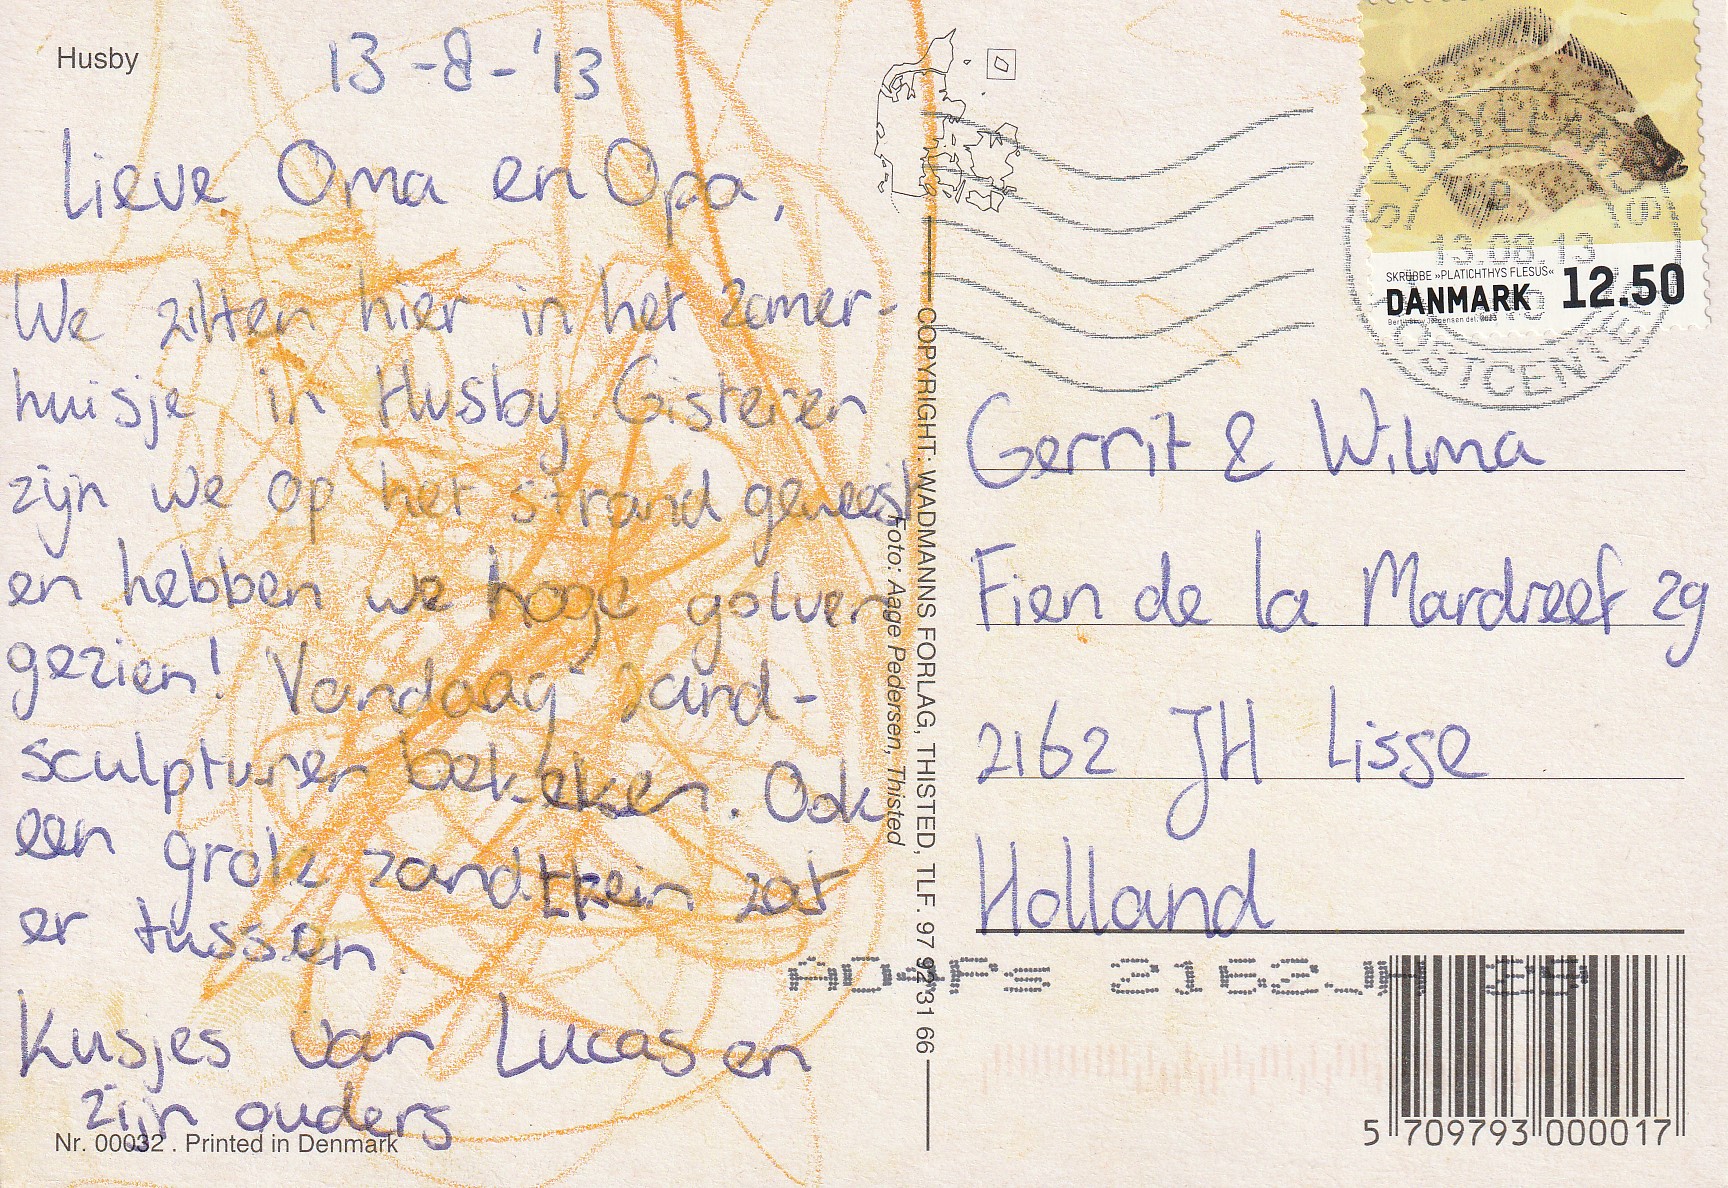 Husby
13-8-'13
Lieve Oma en Opa,
We zitten hier in het zomer-
huisje in Husby Gisteren
zijn we op het strand geweest
en hebben we hoge golven
gezien! Vandaag zand-
sculpturen bekeken. Ook
een grote zandtrein zat
er tussen.
Kusjes van Lucas en
zijn ouders
Nr. 00032 . Printed in Denmark
COPYRIGHT: WADMANNS FORLAG, THISTED, TLF. 97 92 31 66
Foto: Aage Pedersen, Thisted
SKRUBBE »PLATICHTHYS FLESUS«
DANMARK 12.50
13.08.13
POSTCENTER
Gerrit & Wilma
Fien de la Mardreef 29
2162 JH Lisse
Holland
2162JH 29
5 709793 000017